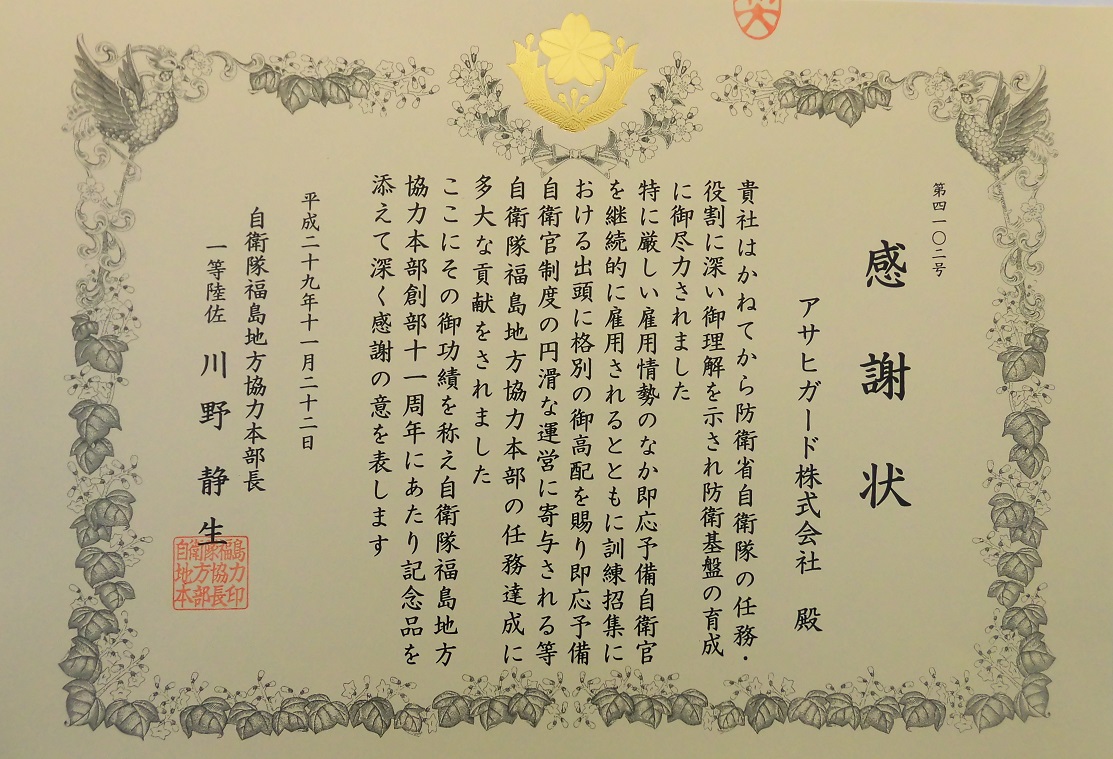 第四一〇二号
感謝状
アサヒガード株式会社 殿
貴社はかねてから防衛省自衛隊の任務・
役割に深い御理解を示され防衛基盤の育成
に御尽力されました
特に厳しい雇用情勢のなか即応予備自衛官
を継続的に雇用されるとともに訓練招集に
おける出頭に格別の御高配を賜り即応予備
自衛官制度の円滑な運営に寄与される等
自衛隊福島地方協力本部の任務達成に
多大な貢献をされました
ここにその御功績を称え自衛隊福島地方
協力本部創部十一周年にあたり記念品を
添えて深く感謝の意を表します
平成二十九年十一月二十二日
自衛隊福島地方協力本部長
一等陸佐 川野静生
自衛隊福島
地方協力
本部長印